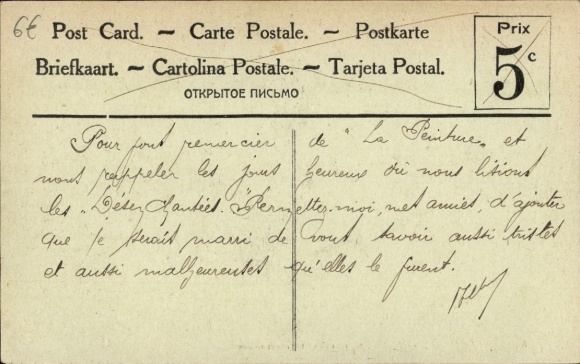 6€ Post Card. ~ Carte Postale. ~ Postkarte
Briefkaart. ~ Cartolina Postale. ~ Tarjeta Postal.
ОТКРЫТОЕ ПИСЬМО
Prix
5 c
Pour vous remercier de "La Peinture" et
nous rappeler les jours heureux où nous lisions
les "Désenchantées". Permettez-moi, mes amies, d'ajouter
que je serais marri de vous savoir aussi tristes
et aussi malheureuses qu'elles le furent.